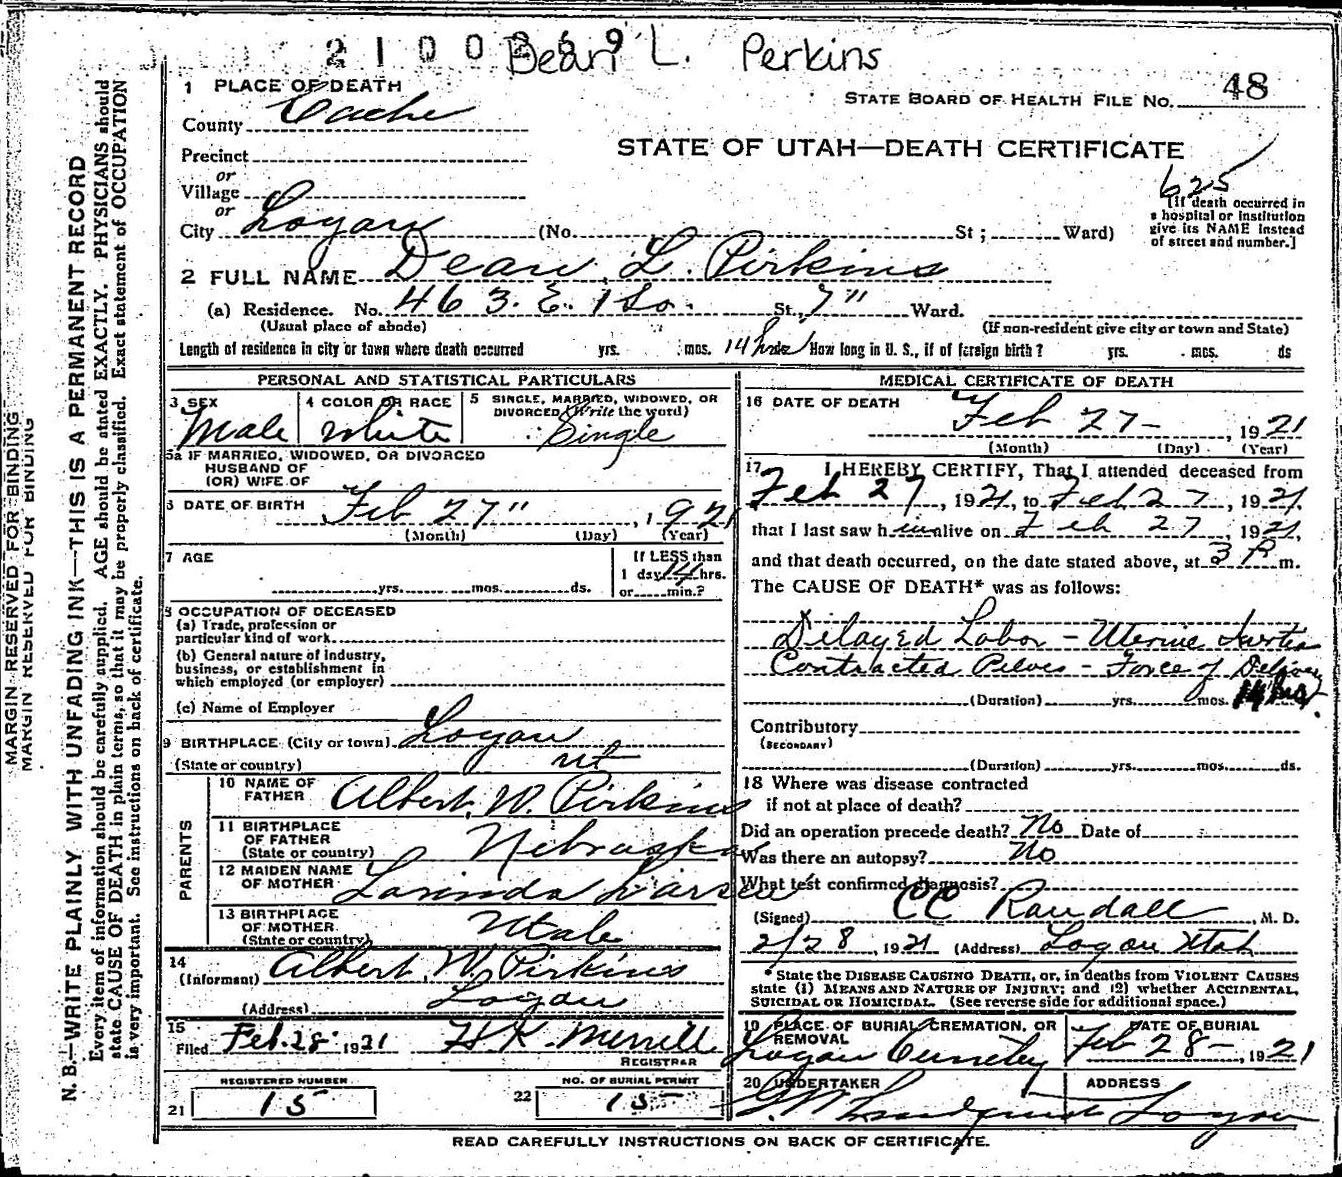 2100269
Dean L. Perkins
1 PLACE OF DEATH
County Cache
STATE BOARD OF HEALTH FILE NO. 48
Precinct
or
Village
or
City Logan (No. St; Ward)
STATE OF UTAH—DEATH CERTIFICATE
625
[If death occurred in
a hospital or institution
give its NAME instead
of street and number.]
2 FULL NAME Dean L. Perkins
(a) Residence. No. 463. E. 1 So. St, 7" Ward.
(Usual place of abode) (If non-resident give city or town and State)
Length of residence in city or town where death occurred yrs. mos. 14 hrs How long in U. S., if of foreign birth? yrs. mos. ds
PERSONAL AND STATISTICAL PARTICULARS
3 SEX
Male
4 COLOR OR RACE
White
5 SINGLE, MARRIED, WIDOWED, OR
DIVORCED (Write the word)
Single
5a IF MARRIED, WIDOWED, OR DIVORCED
HUSBAND OF
(OR) WIFE OF
6 DATE OF BIRTH Feb 27", 1921
(Month) (Day) (Year)
7 AGE
yrs. mos. ds.
If LESS than
1 day 14 hrs.
or min.?
8 OCCUPATION OF DECEASED
(a) Trade, profession or
particular kind of work
(b) General nature of industry,
business, or establishment in
which employed (or employer)
(c) Name of Employer
9 BIRTHPLACE (City or town) Logan
(State or country) Ut
PARENTS
10 NAME OF
FATHER Albert. W. Perkins
11 BIRTHPLACE
OF FATHER
(State or country) Nebraska
12 MAIDEN NAME
OF MOTHER Lorinda Larsen
13 BIRTHPLACE
OF MOTHER
(State or country) Utah
14
(Informant) Albert W. Perkins
(Address) Logan
15
Filed Feb. 28 1921 H. K. Merrill
REGISTRAR
REGISTERED NUMBER
21 15
NO. OF BURIAL PERMIT
22 15
MEDICAL CERTIFICATE OF DEATH
16 DATE OF DEATH
Feb 27-, 1921
(Month) (Day) (Year)
17 I HEREBY CERTIFY, That I attended deceased from
Feb 27, 1921, to Feb 27, 1921,
that I last saw him alive on Feb 27, 1921,
and that death occurred, on the date stated above, at 3 P m.
The CAUSE OF DEATH* was as follows:
Delayed Labor - Uterine Inertia
Contracted Pelvis - Force of Delivery
(Duration) yrs. mos. 14 hrs.
Contributory
(SECONDARY)
(Duration) yrs. mos. ds.
18 Where was disease contracted
if not at place of death?
Did an operation precede death? No Date of
Was there an autopsy? No
What test confirmed diagnosis?
(Signed) CC Randall, M. D.
2/28, 1921 (Address) Logan Utah
*State the DISEASE CAUSING DEATH, or, in deaths from VIOLENT CAUSES
state (1) MEANS AND NATURE OF INJURY; and (2) whether ACCIDENTAL,
SUICIDAL OR HOMICIDAL. (See reverse side for additional space.)
19 PLACE OF BURIAL, CREMATION, OR
REMOVAL
Logan Cemetery
DATE OF BURIAL
Feb 28-, 1921
20 UNDERTAKER
ADDRESS
Logan
READ CAREFULLY INSTRUCTIONS ON BACK OF CERTIFICATE.
MARGIN RESERVED FOR BINDING
MARGIN RESERVED FOR BINDING
N. B.—WRITE PLAINLY WITH UNFADING INK—THIS IS A PERMANENT RECORD
Every item of information should be carefully supplied. AGE should be stated EXACTLY. PHYSICIANS should
state CAUSE OF DEATH in plain terms, so that it may be properly classified. Exact statement of OCCUPATION
is very important. See instructions on back of certificate.